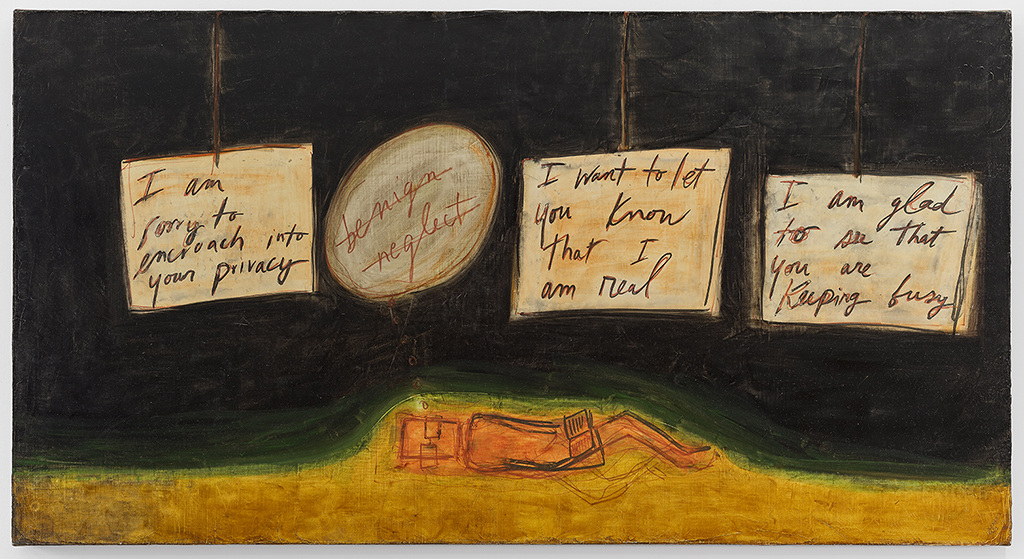 I am
sorry to
encroach into
your privacy
benign
neglect
I want to let
you know
that I
am real
I am glad
to see that
you are
Keeping busy